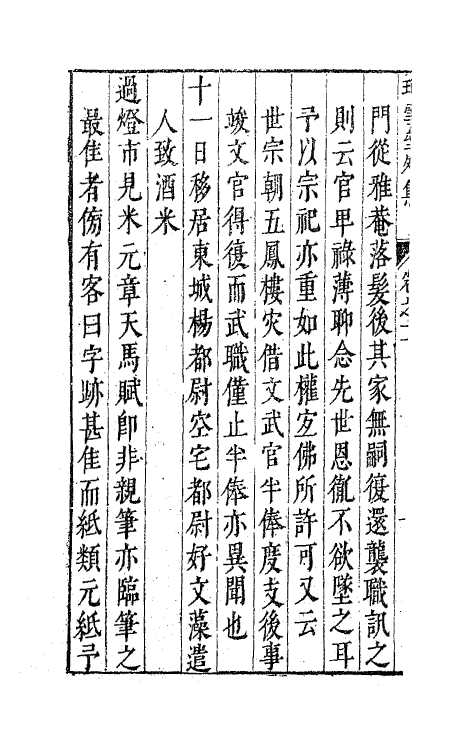 門從雅菴落髮後其家無嗣復還襲職訊之
則云官卑祿薄聊念先世恩徹不欲墜之耳
予以宗祀亦重如此權宜佛所許可又云
世宗朝五鳳樓灾借文武官半俸度支後事
竣文官得復而武職僅止半俸亦異聞也
十一日移居東城楊都尉空宅都尉好文藻遣
人致酒米
過燈市見米元章天馬賦卽非親筆亦臨筆之
最佳者傍有客曰字跡甚佳而紙類元紙予